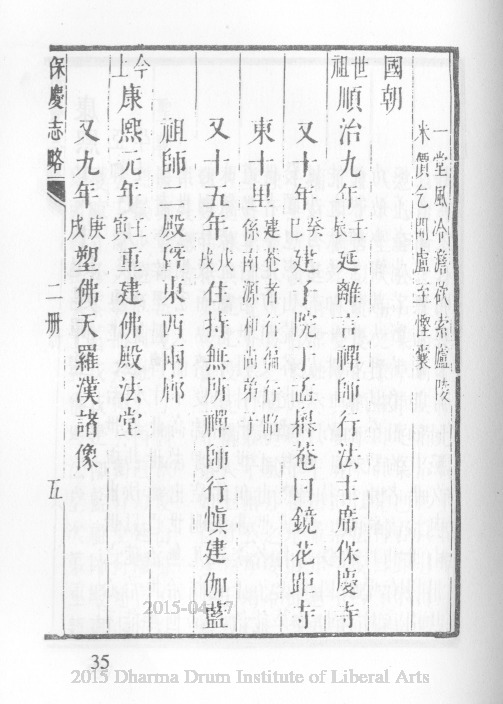 一堂風冷澹欲索廬陵
米價乞閒盧至慳囊
國朝
世祖順治九年壬辰延離言禪師行法主席保慶寺
又十年癸巳建子院于孟㠗菴曰鏡花距寺
東十里建菴者行編行昭係南源和尚弟子
又十五年戊戌住持無所禪師行慎建伽藍
祖師二殿暨東西兩廊
今上康熙元年壬寅重建佛殿法堂
又九年庚戌塑佛天羅漢諸像
保慶志略
二册
五
2015-04-17
35
2015 Dharma Drum Institute of Liberal Arts